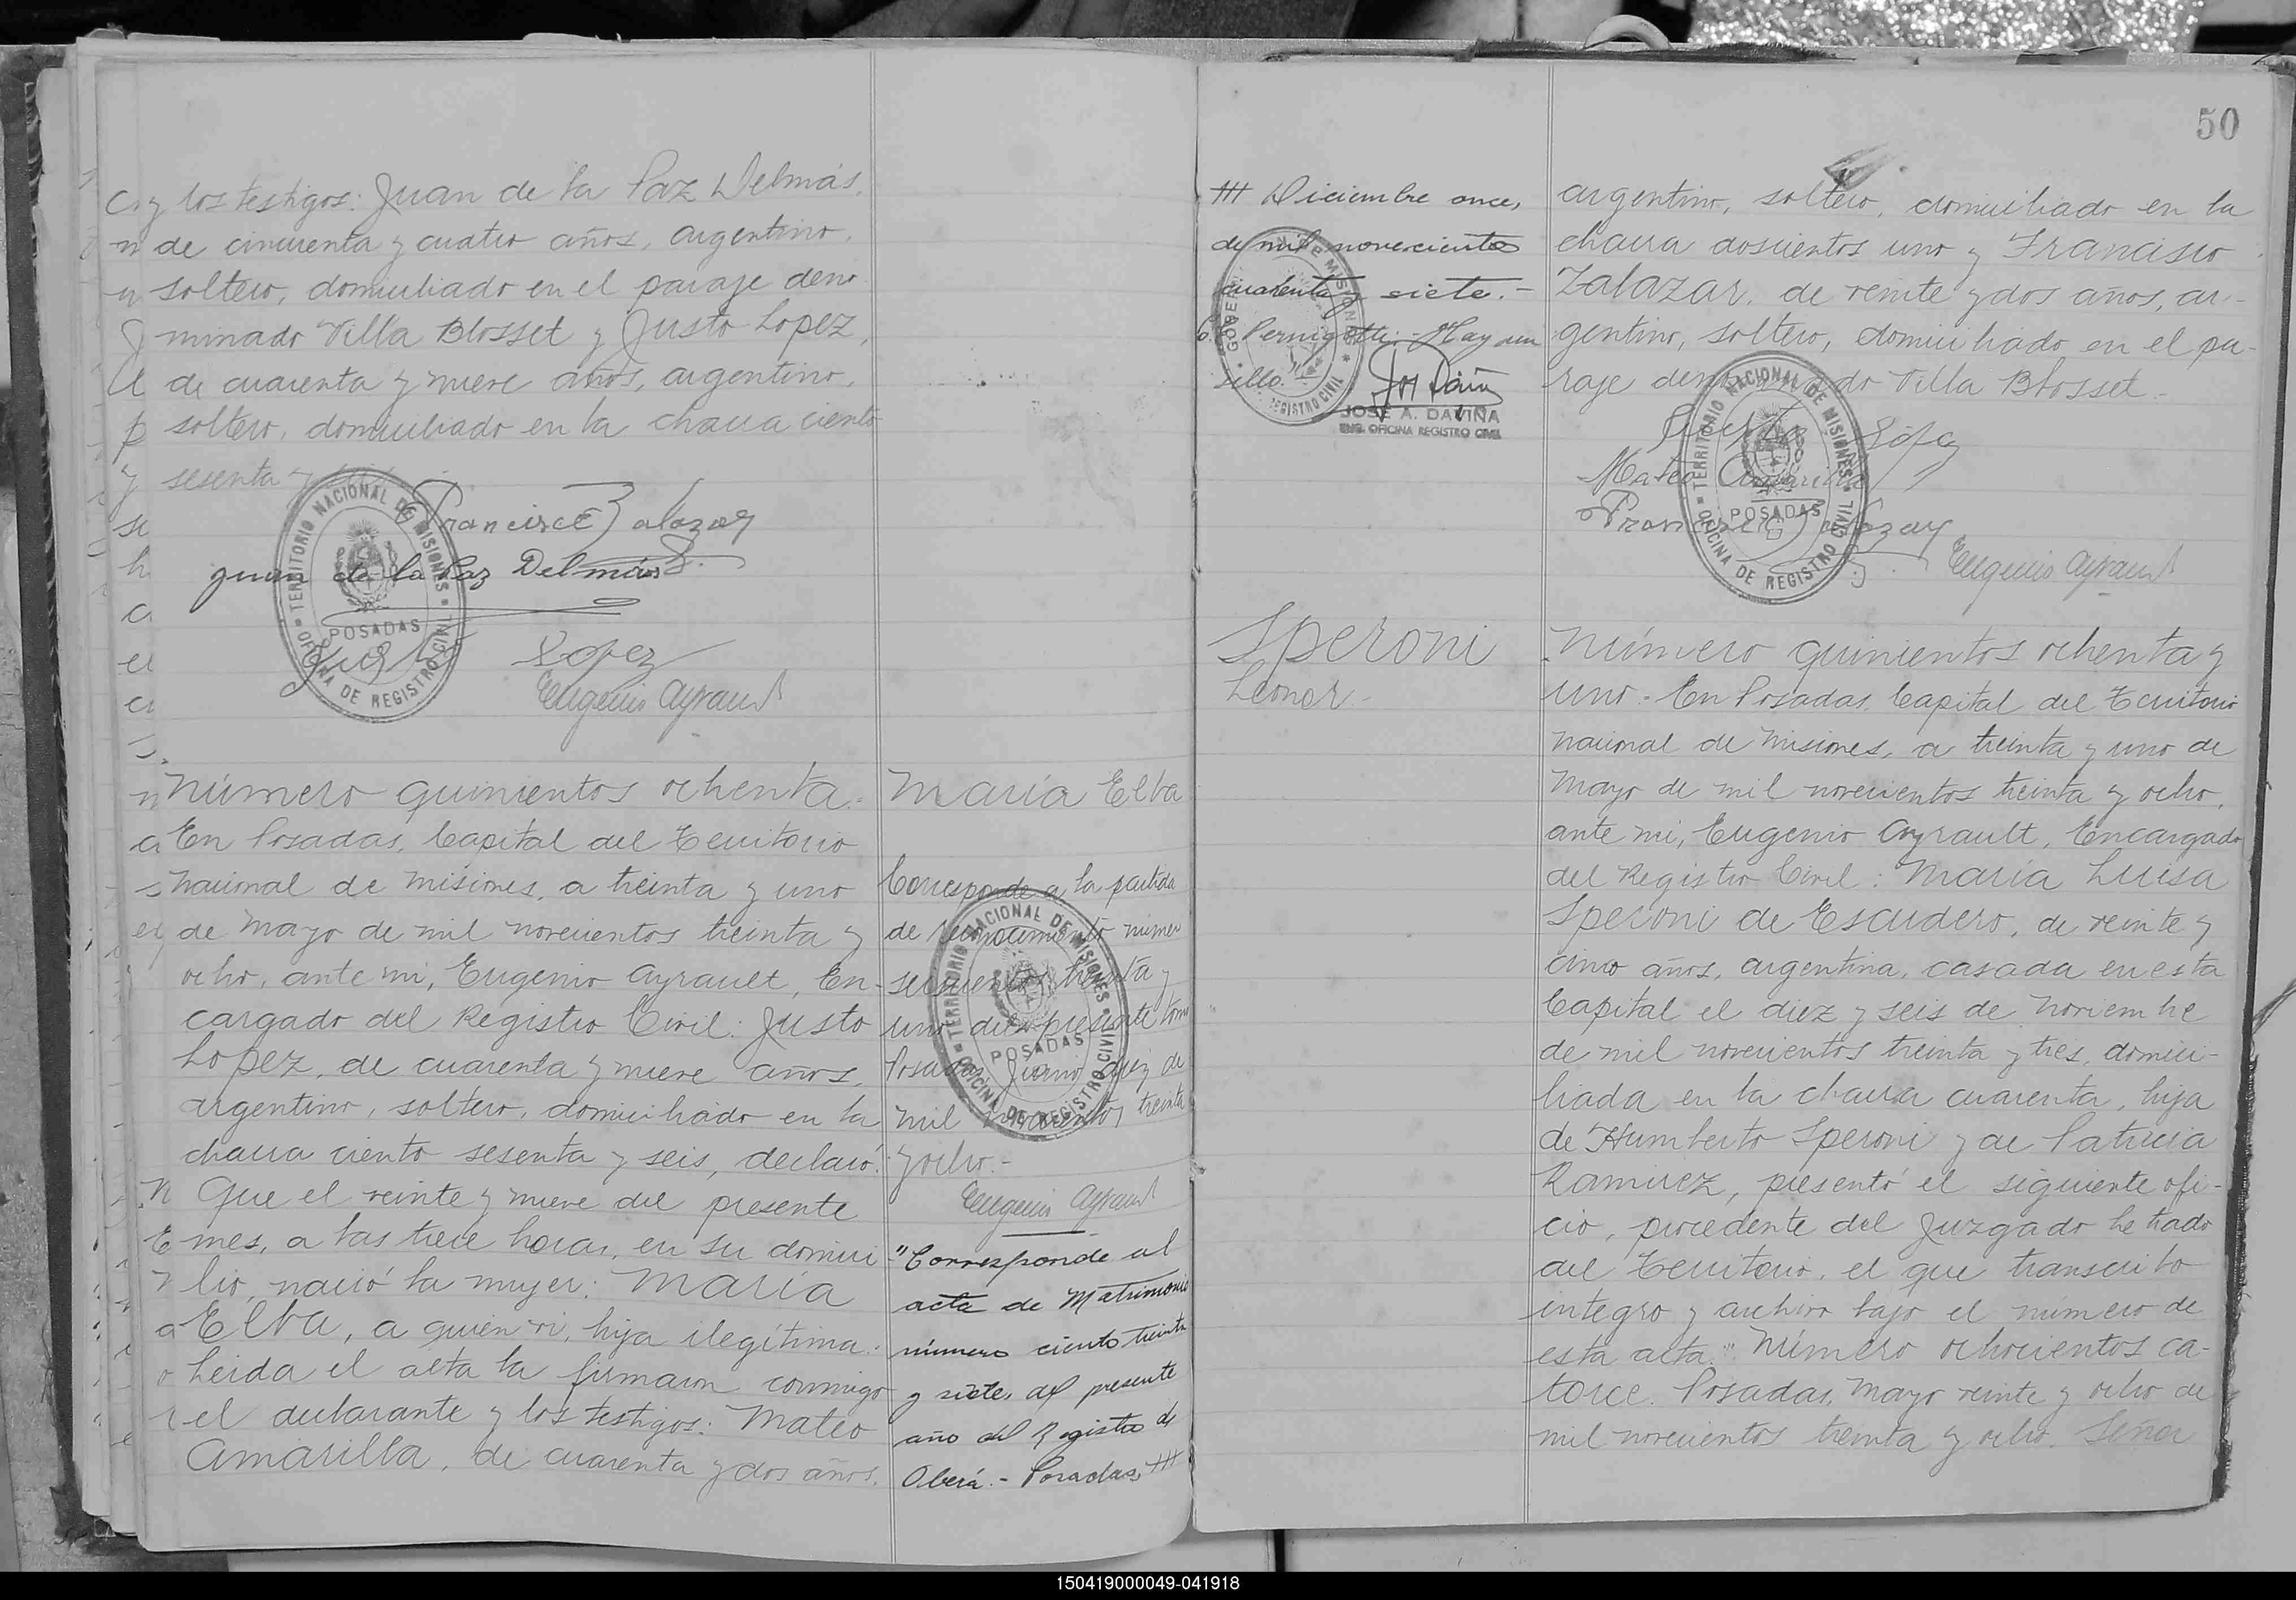 y los testigos: Juan de la Paz Delmás,
de cincuenta y cuatro años, argentino,
soltero, domiciliado en el paraje deno
minado Villa Blosset y Justo Lopez,
de cuarenta y nueve años, argentino,
soltero, domiciliado en la chacra ciento
sesenta y
Francisco Zalazar
Juan de la Paz Delmás
TERRITORIO NACIONAL DE MISIONES
POSADAS
OFICINA DE REGISTRO CIVIL
Justo Lopez
Eugenio Ayrault
Número quinientos ochenta.
En Posadas, Capital del Territorio
nacional de Misiones, a treinta y uno
de Mayo de mil novecientos treinta y
ocho, ante mi, Eugenio Ayrault, En-
cargado del Registro Civil: Justo
Lopez, de cuarenta y nueve años,
argentino, soltero, domiciliado en la
chacra ciento sesenta y seis, declaró:
Que el veinte y nueve del presente
mes, a las trece horas, en su domici
lio, nació la mujer: María
Elba, a quien vi, hija ilegítima.
Leida el alta la firmaron conmigo
el declarante y los testigos: Mateo
Amarilla, de cuarenta y dos años,
María Elba
Corresponde a la partida
de reconocimiento número
seiscientos treinta y
uno del presente tomo
Posadas, Junio diez de
mil novecientos treinta
y ocho.-
Eugenio Ayrault
TERRITORIO NACIONAL DE MISIONES
POSADAS
OFICINA DE REGISTRO CIVIL
"Corresponde al
acta de Matrimonio
número ciento treinta
y siete, del presente
año del Registro de
Oberá.- Posadas, ///
50
/// Diciembre once,
de mil novecientos
cuarenta y siete.-
C. Pernigotti.- Hay un
sello.
JOSE A. DAVIÑA
ENC. OFICINA REGISTRO CIVIL
argentino, soltero, domiciliado en la
chacra doscientos uno y Francisco
Zalazar, de veinte y dos años, ar-
gentino, soltero, domiciliado en el pa-
raje denominado Villa Blosset.
Justo López
Mateo Amarilla
Francisco Zalazar
TERRITORIO NACIONAL DE MISIONES
POSADAS
OFICINA DE REGISTRO CIVIL
Eugenio Ayrault
Speroni
Leonor.-
Número quinientos ochenta y
uno.- En Posadas, Capital del Territorio
nacional de Misiones, a treinta y uno de
Mayo de mil novecientos treinta y ocho,
ante mi, Eugenio Ayrault, Encargado
del Registro Civil: María Luisa
Speroni de Escudero, de veinte y
cinco años, argentina, casada en esta
Capital el diez y seis de Noviembre
de mil novecientos treinta y tres, domici-
liada en la chacra cuarenta, hija
de Humberto Speroni y de Patricia
Ramirez, presentó el siguiente ofi-
cio, procedente del Juzgado Letrado
del Territorio, el que transcribo
integro y archivo bajo el número de
esta alta: "Número ochocientos ca-
torce. Posadas, Mayo veinte y ocho de
mil novecientos treinta y ocho. Señor
150419000049-041918